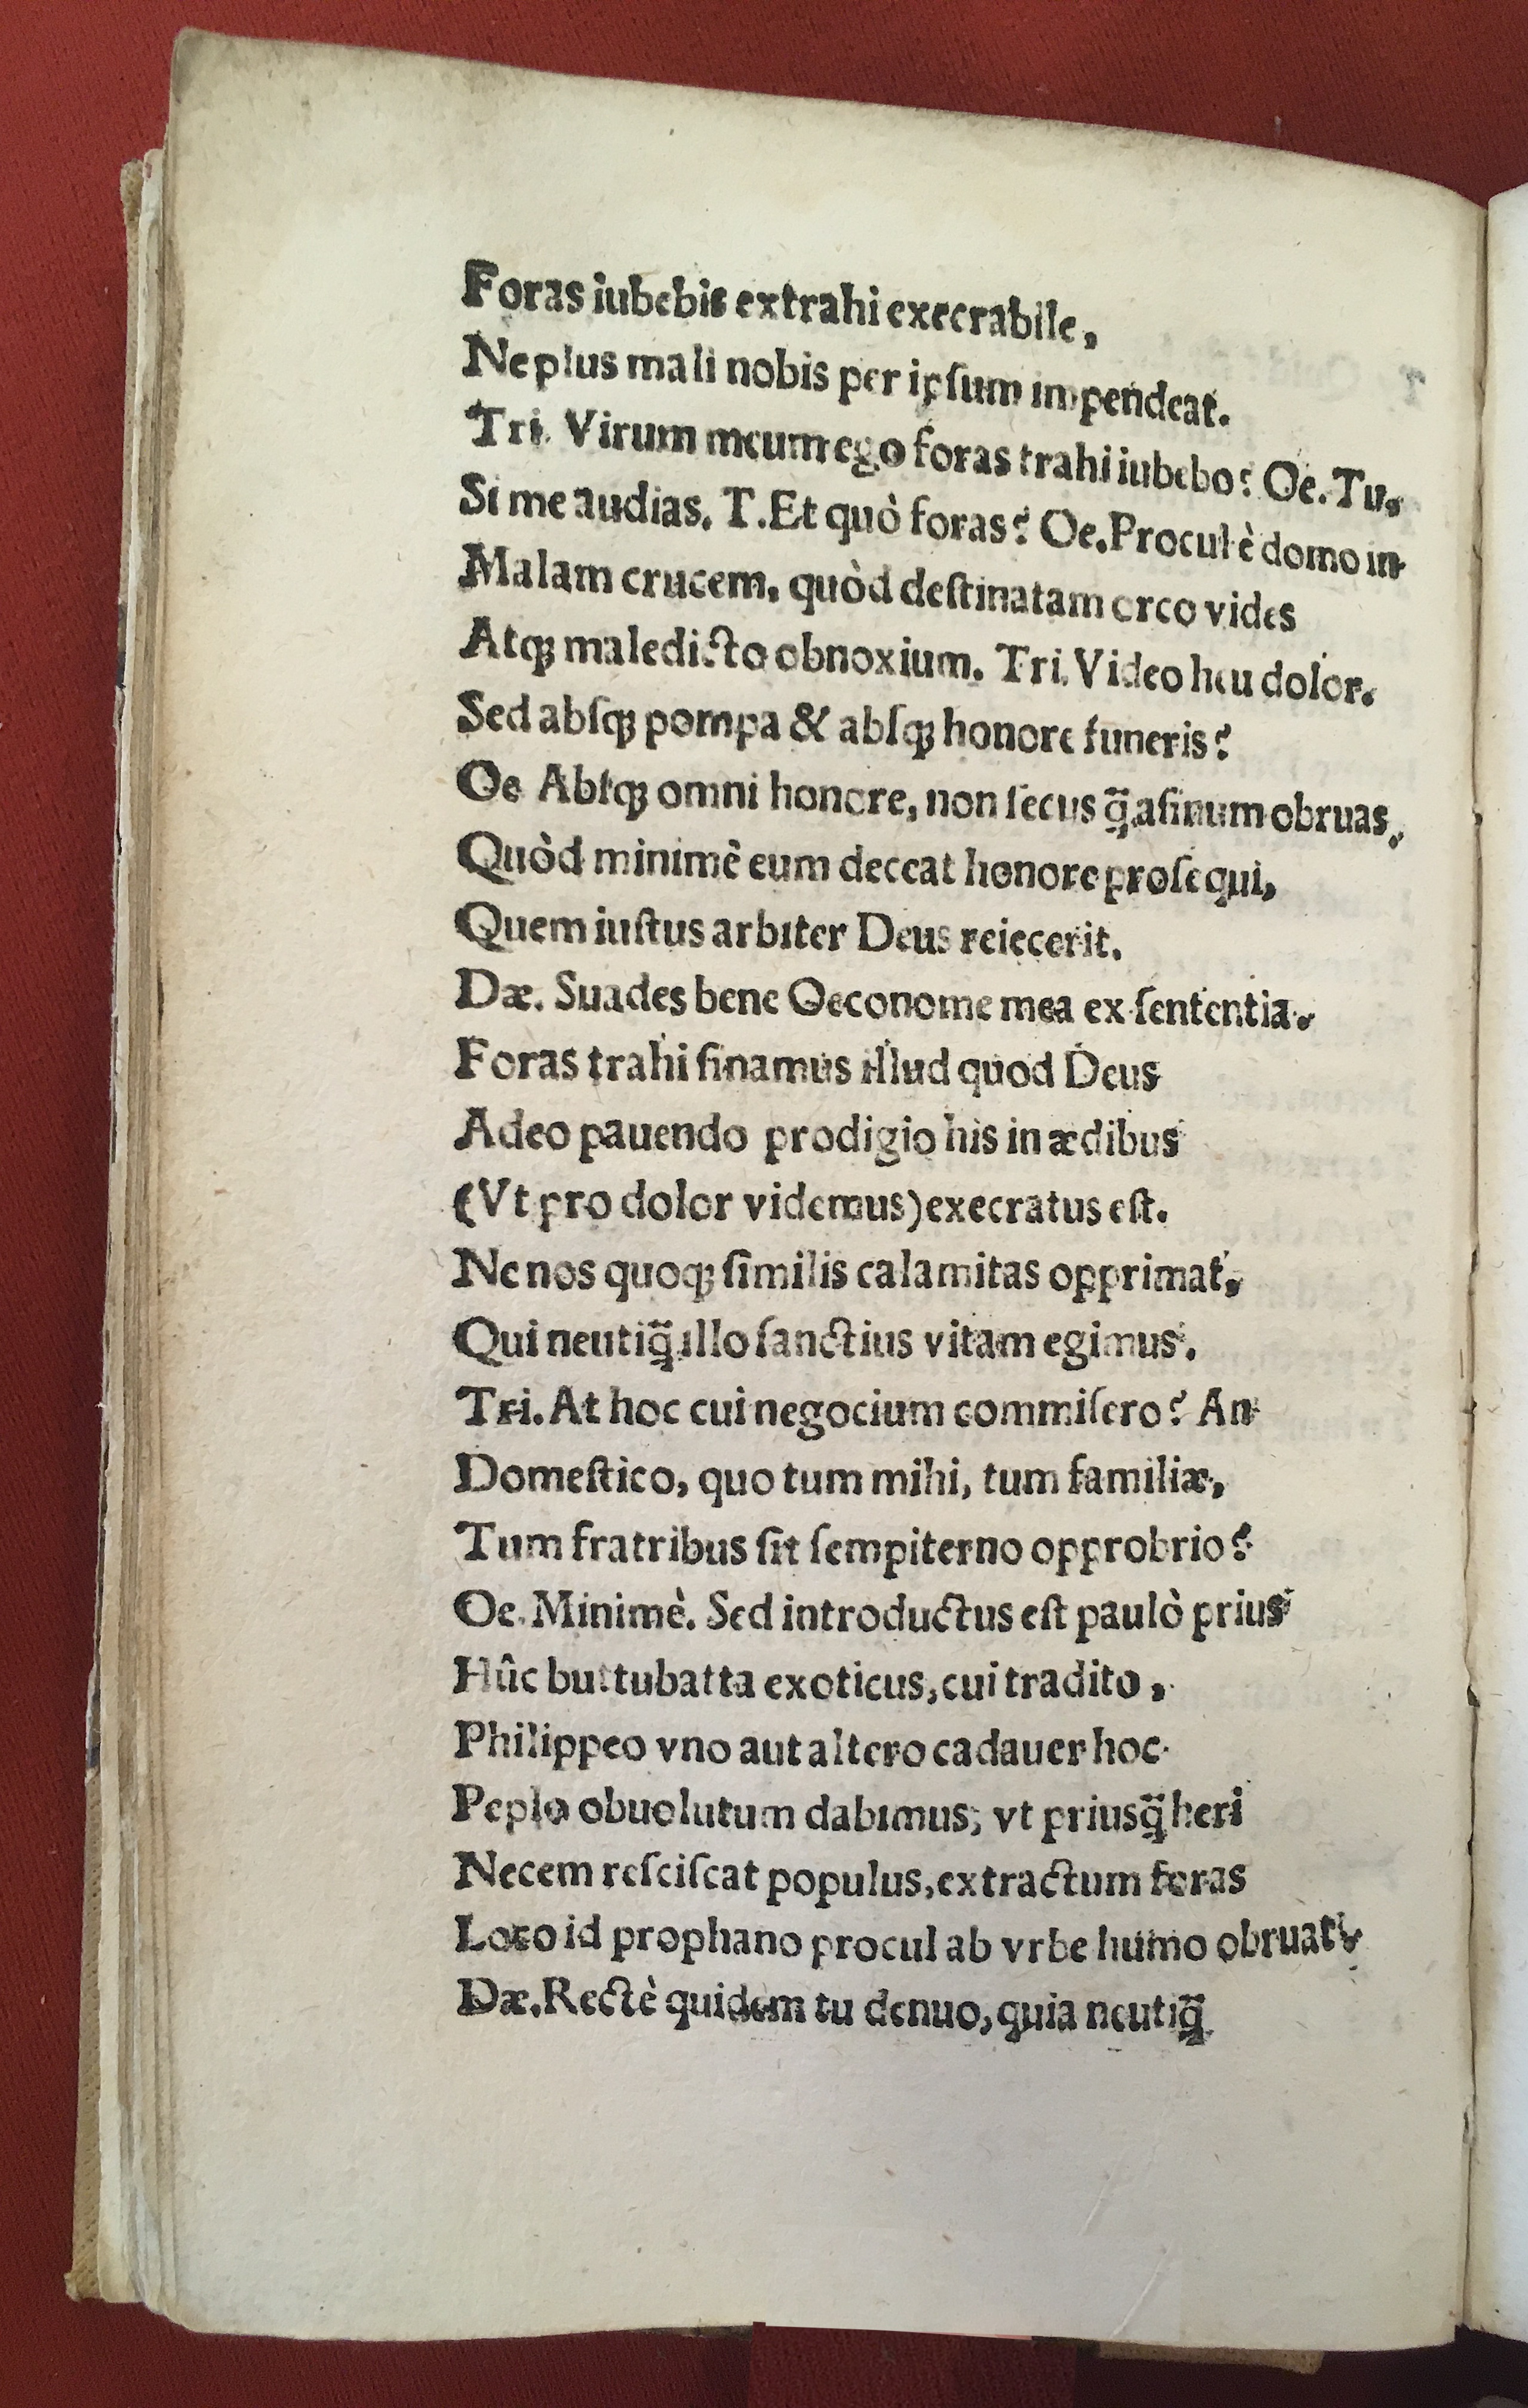 Foras iubebis extrahi execrabile,
Ne plus mali nobis per ipſum impendeat.
Tri. Virum meum ego foras trahi iubebo? Oe. Tu,
Si me audias. T. Et quò foras? Oe. Procul è domo in
Malam crucem, quòd deſtinatam orco vides
Atq; maledicto obnoxium. Tri. Video heu dolor.
Sed abſq; pompa & abſq; honore funeris?
Oe Abſq; omni honore, non ſecus q̃ aſinum obruas,
Quòd minimè eum deceat honore proſequi,
Quem iuſtus arbiter Deus reiecerit.
Dæ. Suades bene Oeconome mea ex ſententia.
Foras trahi ſinamus illud quod Deus
Adeo pauendo prodigio his in ædibus
(Vt pro dolor videmus) execratus eſt.
Ne nos quoq; ſimilis calamitas opprimat,
Qui neutiq̃ illo ſanctius vitam egimus.
Tri. At hoc cui negocium commiſero? An
Domeſtico, quo tum mihi, tum familiæ,
Tum fratribus ſit ſempiterno opprobrio?
Oe. Minimè. Sed introductus eſt paulò prius
Hûc buttubatta exoticus, cui tradito,
Philippeo vno aut altero cadauer hoc
Peplo obuolutum dabimus; vt priusq̃ heri
Necem reſciſcat populus, extractum foras
Loco id prophano procul ab vrbe humo obruat.
Dæ. Rectè quidem tu denuo, quia neutiq̃